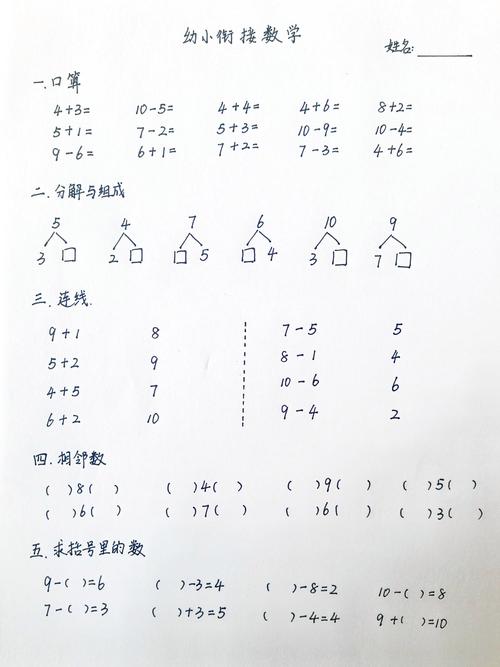 幼小衔接数学
姓名:
一.口算
4+3= 10-5= 4+4= 4+6= 8+2=
5+1= 7-2= 5+3= 10-9= 10-4=
9-6= 6+1= 7+2= 7-3= 4+6=
二.分解与组成
5 4 7 6 10 9
3 □ 2 □ □ 5 □ 4 3 □ 7 □
三.连线.
9+1 8 7-5 5
5+2 9 8-1 4
4+5 7 10-6 6
6+2 10 9-4 2
四.相邻数
( )8( ) ( )4( ) ( )9( ) ( )5( )
( )6( ) ( )7( ) ( )6( ) ( )3( )
五.求括号里的数
9-( )=6 ( )-3=4 ( )-8=2 10-( )=8
7-( )=3 ( )+3=5 ( )-4=4 9+( )=10